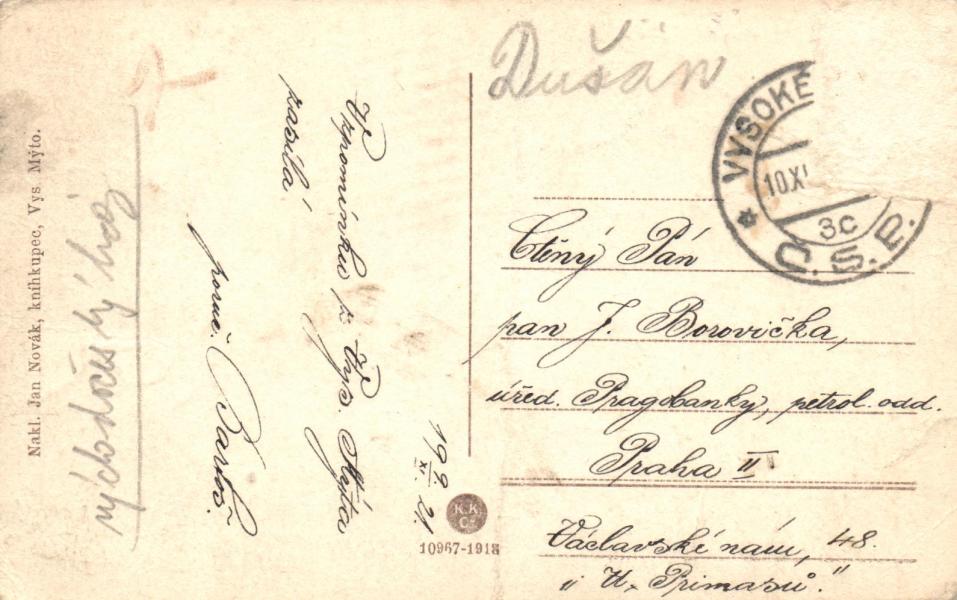 Nakl. Jan Novák, knihkupec, Vys. Mýto.
Vzpomínku z Vys. Mýta
zasílá
poruč. Bartoš.
19 9/XI. 21.
K.K.
Co
10967-1918
Dušan
VYSOKÉ
10.XI
3c
Č.S.P.
Ctěný Pán
pan J. Borovička,
úřed. Pragobanky, petrol. odd.
Praha II
Václavské nám, 48.
"U Primasů."